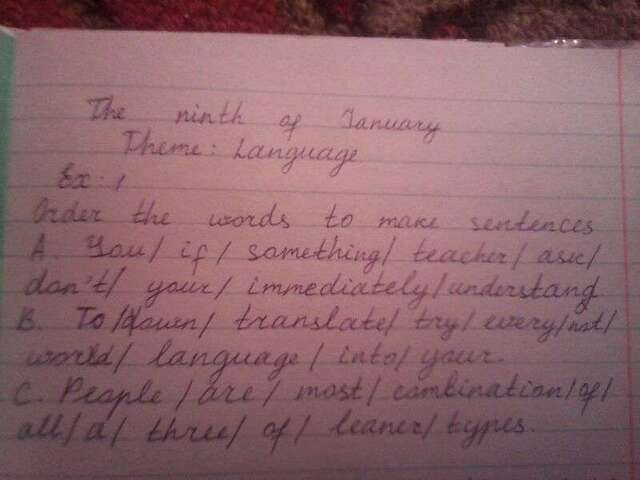 The ninth of January
Theme: Language
Ex. 1
Order the words to make sentences
A. You/ if/ something/ teacher/ ask/
don't/ your/ immediately/understand
B. To/down/ translate/ try/ every/not/
world/ language/ into/ your.
C. People/are/ most/ combination/of/
all/a/ three/ of/ leaner/ types.